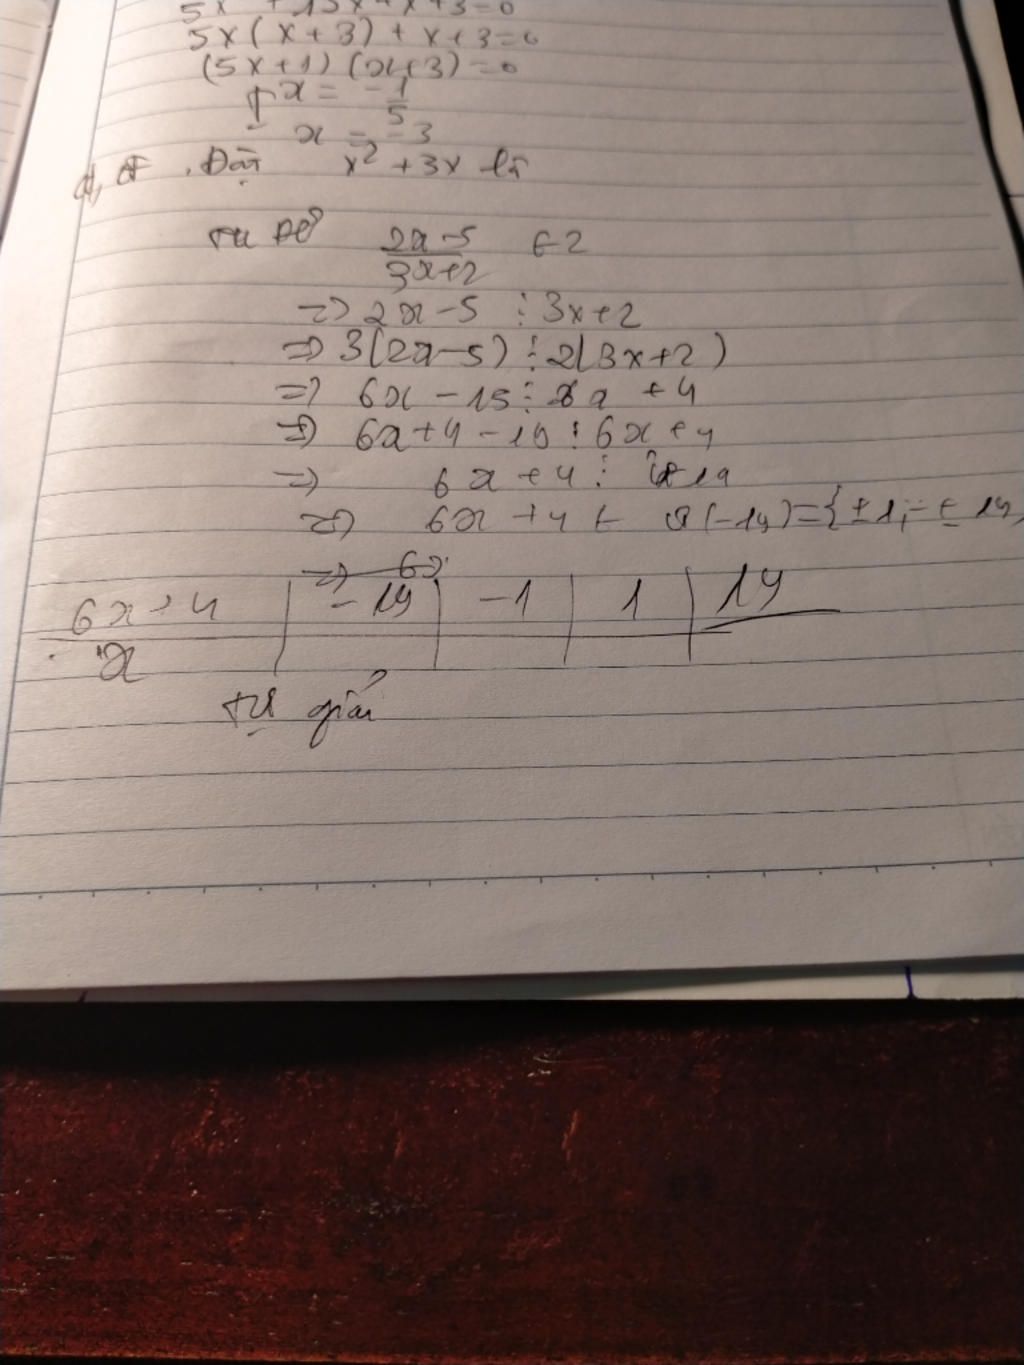 5x² + 15x + x + 3 = 0
5x(x+3) + x+3 = 0
(5x+1)(x+3) = 0
x = -1/5
x = -3
Đặt x² + 3x là
Để (2x-5)/(3x+2) ∈ Z
=> 2x-5 ⋮ 3x+2
=> 3(2x-5) ⋮ 2(3x+2)
=> 6x - 15 ⋮ 6x + 4
=> 6x+4 - 19 ⋮ 6x+4
=> 6x + 4 ⋮ 19
=> 6x + 4 ∈ Ư(-19) = {±1; ± 19}
6x + 4 | -19 | -1 | 1 | 19
x
tự giải